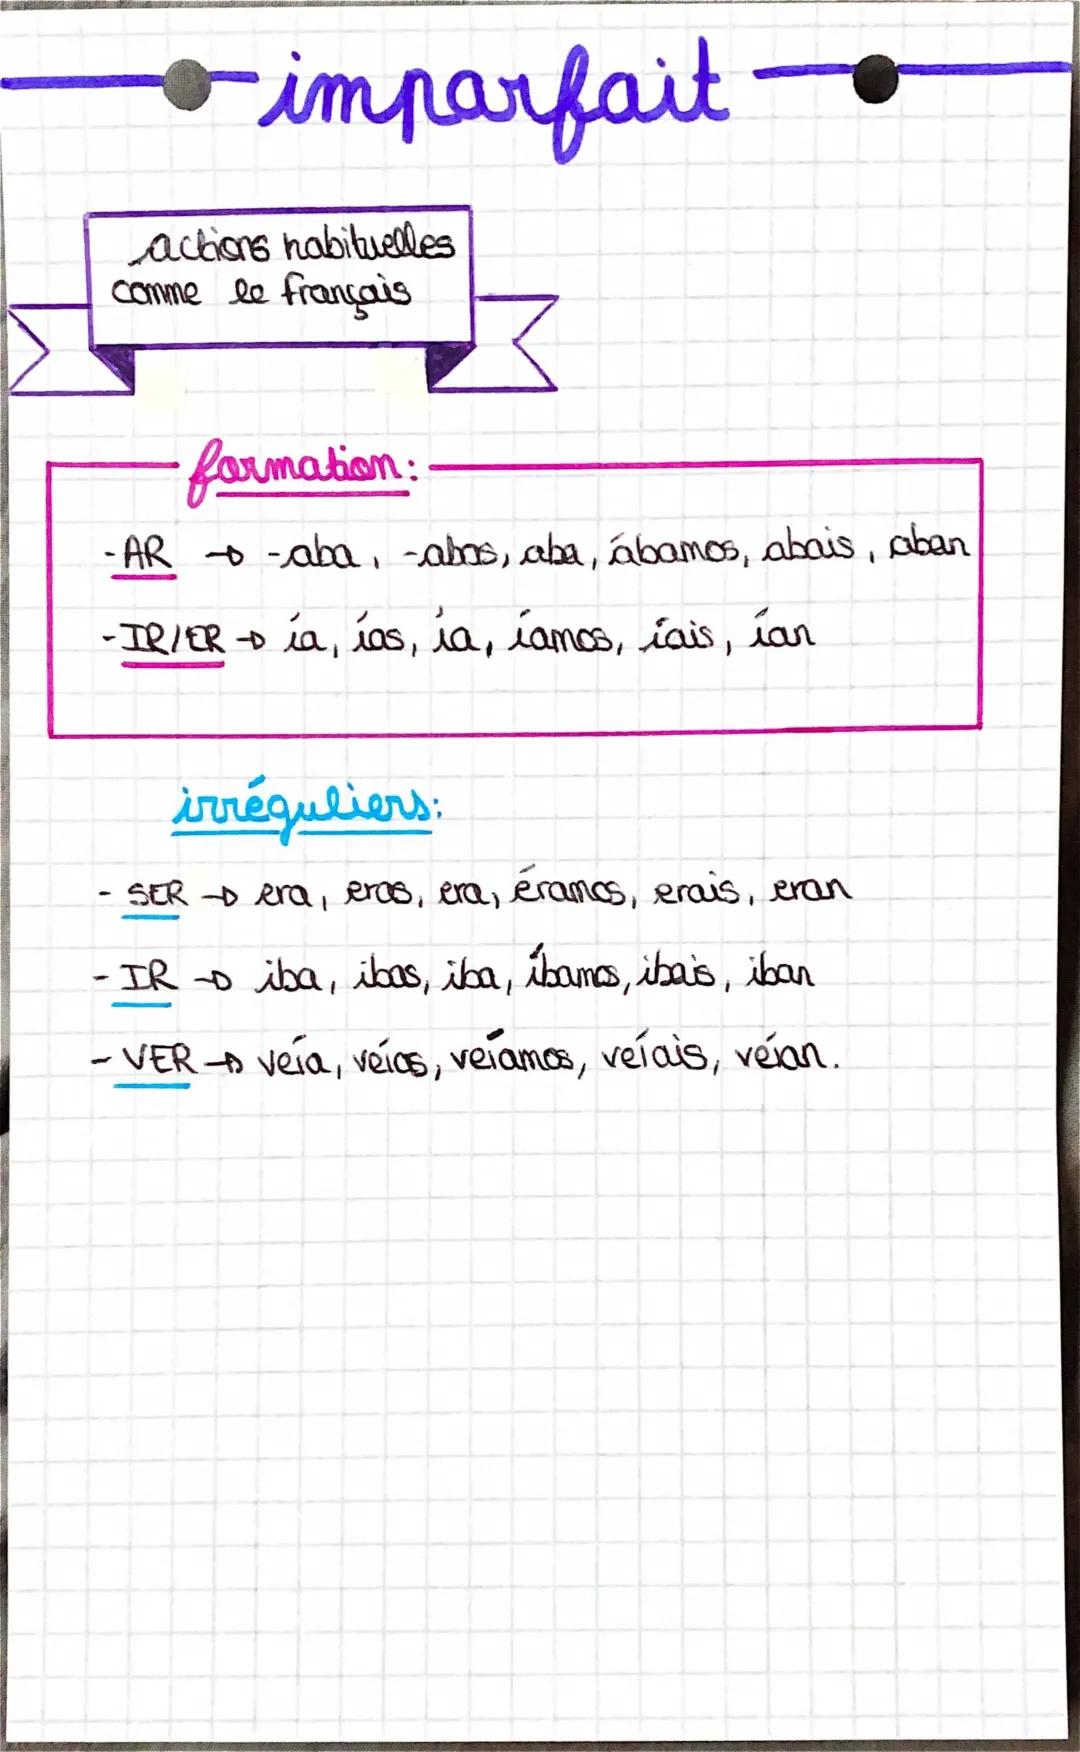 imparfait
actions habituelles
comme le français
formation:
-AR → -aba, -abas, aba, ábamos, abais, aban
-IR/ER → ía, ías, ía, íamos, íais, ían
irréguliers:
- SER → era, eras, era, éramos, erais, eran
- IR → iba, ibas, iba, íbamos, ibais, iban
- VER → veía, veías, veíamos, veíais, veían.